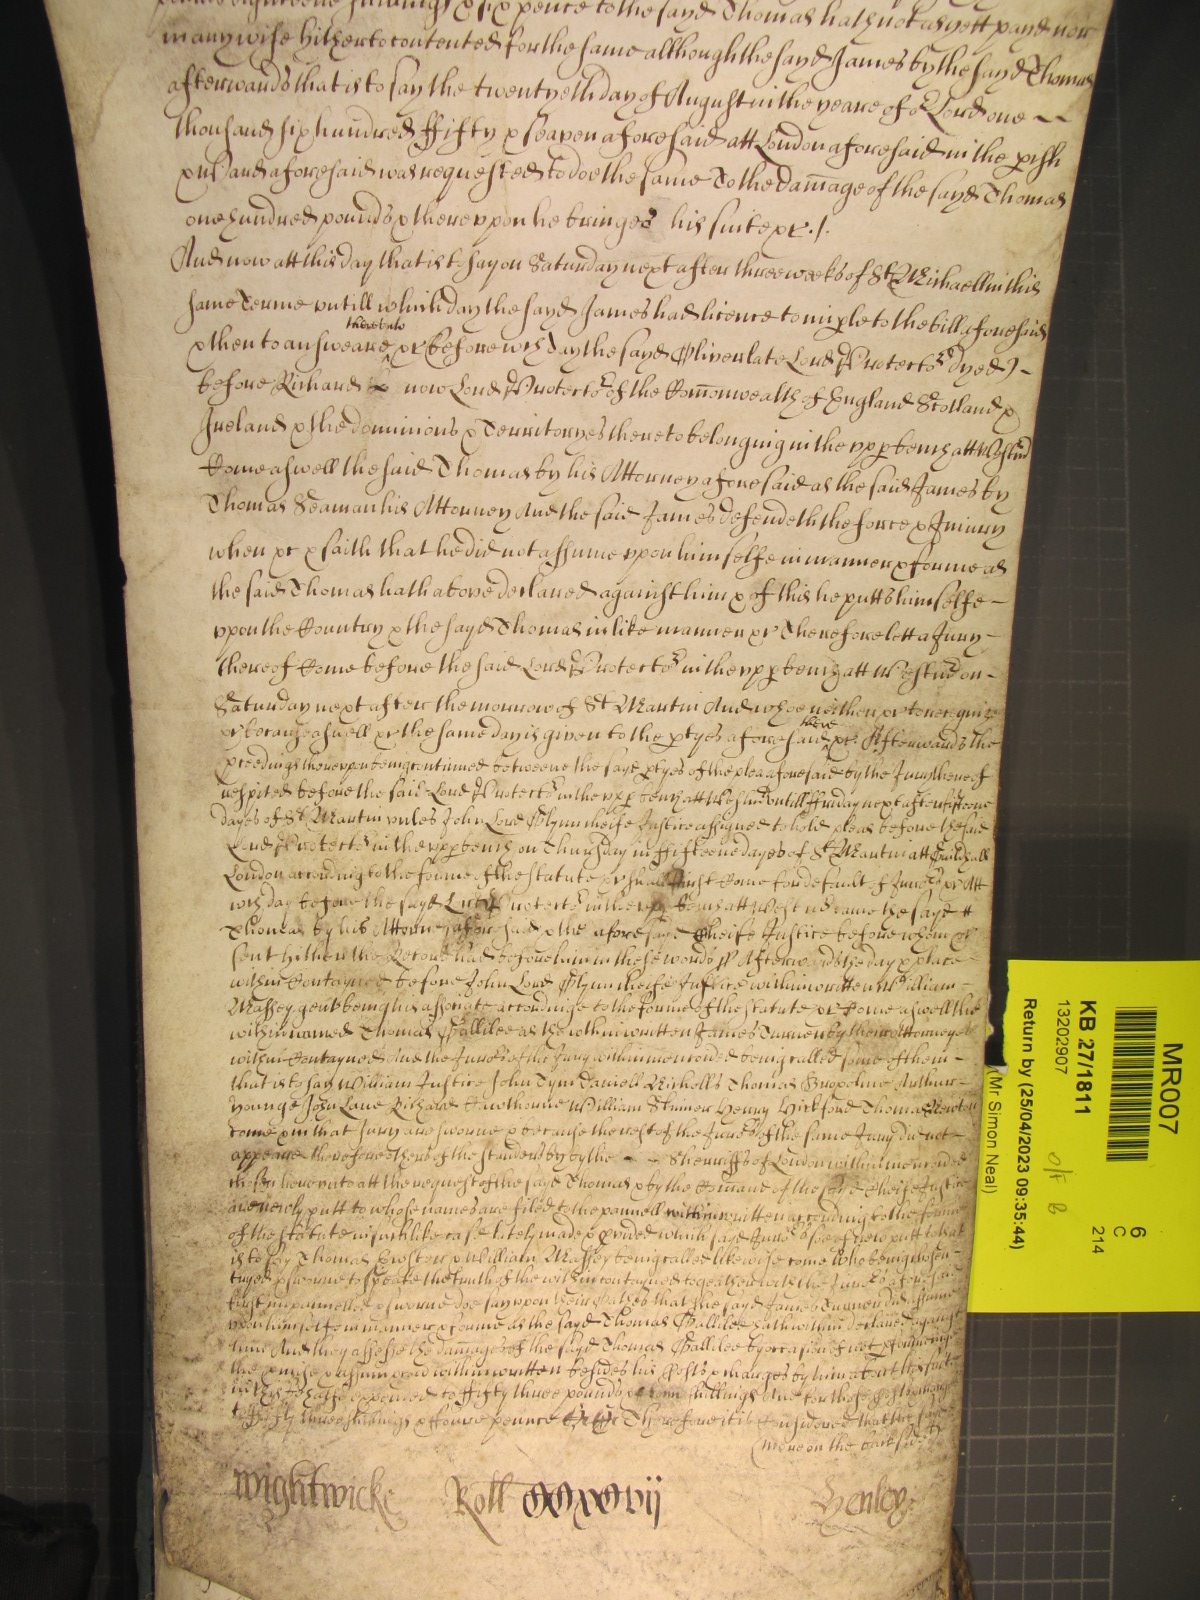 shillings & six pence to the sayd Thomas hath not as yett payd nor
in any wise hitherto contented for the same although the sayd James by the sayd Thomas
afterwards that is to say the twentyeth day of August in the yeare of or Lord one
thousand six hundred fifty & seaven aforesaid att London aforesaid in the pish
& Ward aforesaid was requested to doe the same To the damage of the sayd Thomas
one hundred pounds & thereuppon he bringes his suite &c ./.
And now att this day that is to say on Saturday next after three weeks of St Michaell in this
same Terme untill which day the sayd James had licence to imple to the bill aforesaid
& then to answeare thereunto &c before wch day the sayd Oliver late Lord Protector dyed)
before Richard now Lord Protector of the Comonwealth of England Scotland &
Ireland & the dominions & Territoryes thereto belonging in the upp bench att Westmr
Come aswell the said Thomas by his Attorney aforesaid as the said James by
Thomas Seaman his Attorney And the said James defendeth the force & Iniury
when &c & saith that he did not assume uppon himselfe in manner & forme as
the said Thomas hath above declared against him & of this he putts himselfe
uppon the Country & the sayd Thomas in like manner &c Therefore lett a Jury
thereof Come before the said Lord Protector in the upp bench att Westmr on
Saturday next after the morrow of St Martin And whoe neither &c to recognize
&c because aswell &c the same day is given to the ptyes aforesaid there &c. Afterwards the
pceedings thereuppon being continued betweene the sayd ptyes of the plea aforesaid by the Jury thereof
respited before the said Lord Protector in the upp bench att Westmr untill ffriday next after fifteene
dayes of St Martin unles John Lord Glynn cheife Justice assigned to hold pleas before the said
Lord Protector in the upp bench on Thursday in fifteene dayes of St Martin att Guildhall
London according to the forme of the statute &c shall first Come for default of Jurors &c Att
wch day before the sayd Lord Protector in the upp bench att Westmr came the sayd
Thomas by his Attorney aforesaid & the aforesayd Cheife Justice before whom &c
sent hither the Record had before him in these words Afterwards the day & place
within Contayned before John Lord Glynn cheife Justice within written William
Massey gent being his associate accordinge to the forme of the statute &c Come aswell the
within named Thomas Gallilee as the within written James Turner by their Attorneyes
within Contayned And the Jurors of the Jury within mencioned being called some of them
that is to say William Justice John Tym Daniell Nicholls Thomas Arthur
Younge John Lane Richard Hawthorne William Skinner Henry Hickford Thomas Newton
come & in that Jury are sworne & because the rest of the Jurors of the same Jury did not
appeare therefore others of the standers by by the Sherriffs of London within mencioned
chosen hereunto att the request of the sayd Thomas & by the Comand of the sayd Cheife Justice
are newly putt to whose names are filed to the pannell within written according to the forme
of the statute in such like case lately made & pvided which sayd Jurors soe of new putt to that
is to say Thomas & William Massey being called likewise come Who being chosen
tryed & sworne to speake the truth of the within contayned togeather with the Jurors aforesaid
first impannelled & sworne doe say uppon their Oathes that the sayd James Turner did assume
uppon himselfe in manner & forme as the sayd Thomas Gallilee hath within declared against
him And they assesse the damages of the sayd Thomas Gallilee by occasion of not pformeinge
the pmise & assumpcion within written besides his Costs & charges by him about his suite
in this behalfe expended to fifty three pounds & shillings And for those Costs & charges
to fifty three shillings & foure pence Therefore it is Considered that the sayd
(more on the back side)
Wightwicke Roll CCxxvij Henley
MR007
KB 27/1811
13202907
Return by (25/04/2023 09:35:44)
(Mr Simon Neal)
6
C
214